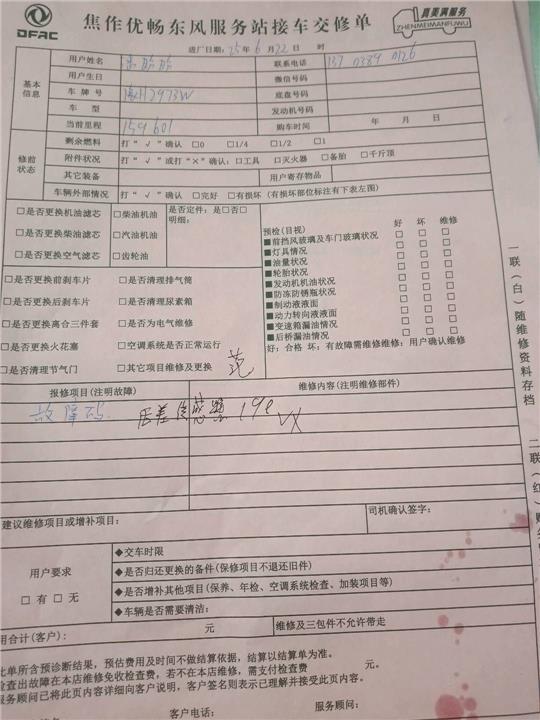 DFAC
焦作优畅东风服务站接车交修单
真美满服务
ZHENMEIMANFUWU
进厂日期：25年6月22日 时
基本信息
用户姓名
联系电话 137 0389 0126
用户生日 微信号码
车牌号 H2973W 底盘号码
车型 发动机号码
当前里程 159601 购车时间 年 月 日
修前状态
剩余燃料 打“√”确认 □0 □1/4 □1/2 □1
附件状况 打“√”或打“×”确认：□工具 □灭火器 □备胎 □千斤顶
其它装备 用户寄存物品
车辆外部情况 打“√”确认 □完好 □有损坏（有损坏部位标注有下表左图）
□是否更换机油滤芯 □柴油机油 是否定件：是□否□
明细：
□是否更换柴油滤芯 □汽油机油
□是否更换空气滤芯 □齿轮油
□是否更换前刹车片 □是否清理排气筒
□是否更换后刹车片 □是否清理尿素箱
□是否更换离合三件套 □是否为电气维修
□是否更换火花塞 □空调系统是否正常运行
□是否清理节气门 □其它项目维修及更换
预检(目视) 好 坏 维修
■前挡风玻璃及车门玻璃状况 □ □ □
■灯具情况 □ □ □
■油量状况 □ □ □
■轮胎状况 □ □ □
■发动机机油状况 □ □ □
■防冻防锈瓶状况 □ □ □
■制动液液面 □ □ □
■动力转向液液面 □ □ □
■变速箱漏油情况 □ □ □
■后桥漏油情况 □ □ □
好：合格 坏：有故障需维修维修：用户确认维修
报修项目(注明故障) 维修内容(注明维修部件)
故障码 压差传感器 190
建议维修项目或增补项目： 司机确认签字：
用户要求
□有 □无
◆交车时限
◆是否归还更换的备件(保修项目不退还旧件)
◆是否增补其他项目(保养、年检、空调系统检查、加装项目等)
◆车辆是否需要清洁：
用合计(客户)： 元 维修及三包件不允许带走
此单所含预诊断结果，预估费用及时间不做结算依据，结算以结算单为准。
检查出故障在本店维修免收检查费，若不在本店维修，需支付检查费 元。
服务顾问已将此页内容详细向客户说明，客户签名则表示已理解并接受此页内容。
客户电话： 服务顾问：
一联（白）随维修资料存档
二联（红）